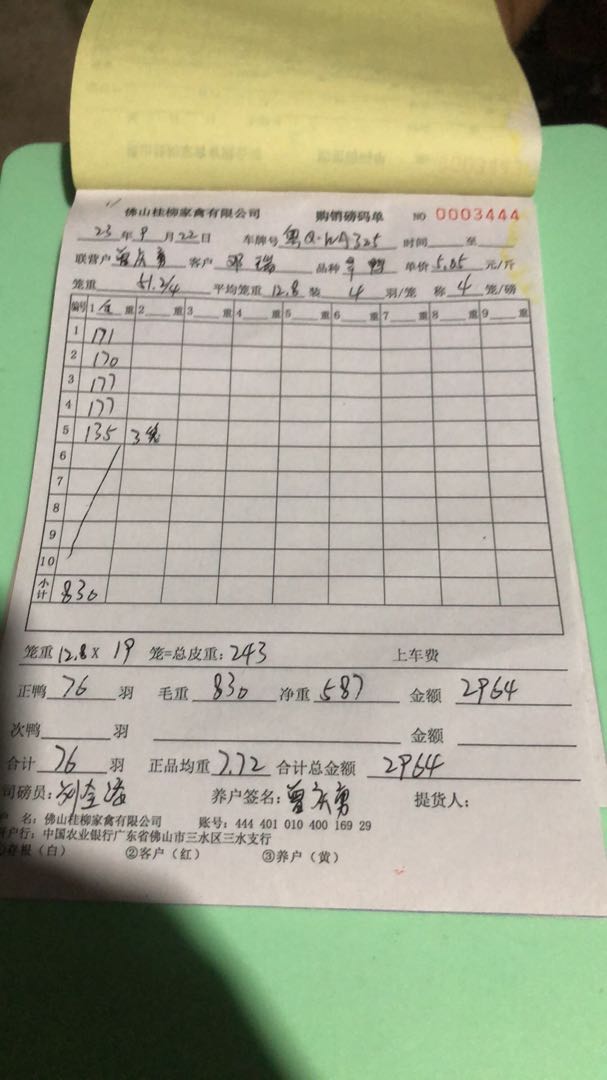 佛山桂柳家禽有限公司 购销磅码单 NO 0003444
23年9月22日 车牌号 粤Q·WA325 时间 至
联营户 曾庆勇 客户 邓瑞 品种 单价 5.05 元/斤
笼重 51.2/4 平均笼重 12.8 装 4 羽/笼 称 4 笼/磅
编号 1 重 2 重 3 重 4 重 5 重 6 重 7 重 8 重 9 重
1 171
2 170
3 177
4 177
5 135 3笼
6
7
8
9
10
小计 830
笼重 12.8 X 19 笼=总皮重:243 上车费
正鸭 76 羽 毛重 830 净重 587 金额 2964
次鸭 羽 金额
合计 76 羽 正品均重 7.72 合计总金额 2964
司磅员: 养户签名:曾庆勇 提货人:
名:佛山桂柳家禽有限公司 账号:444 401 010 400 169 29
户行:中国农业银行广东省佛山市三水区三水支行
存根(白) ②客户(红) ③养户(黄)